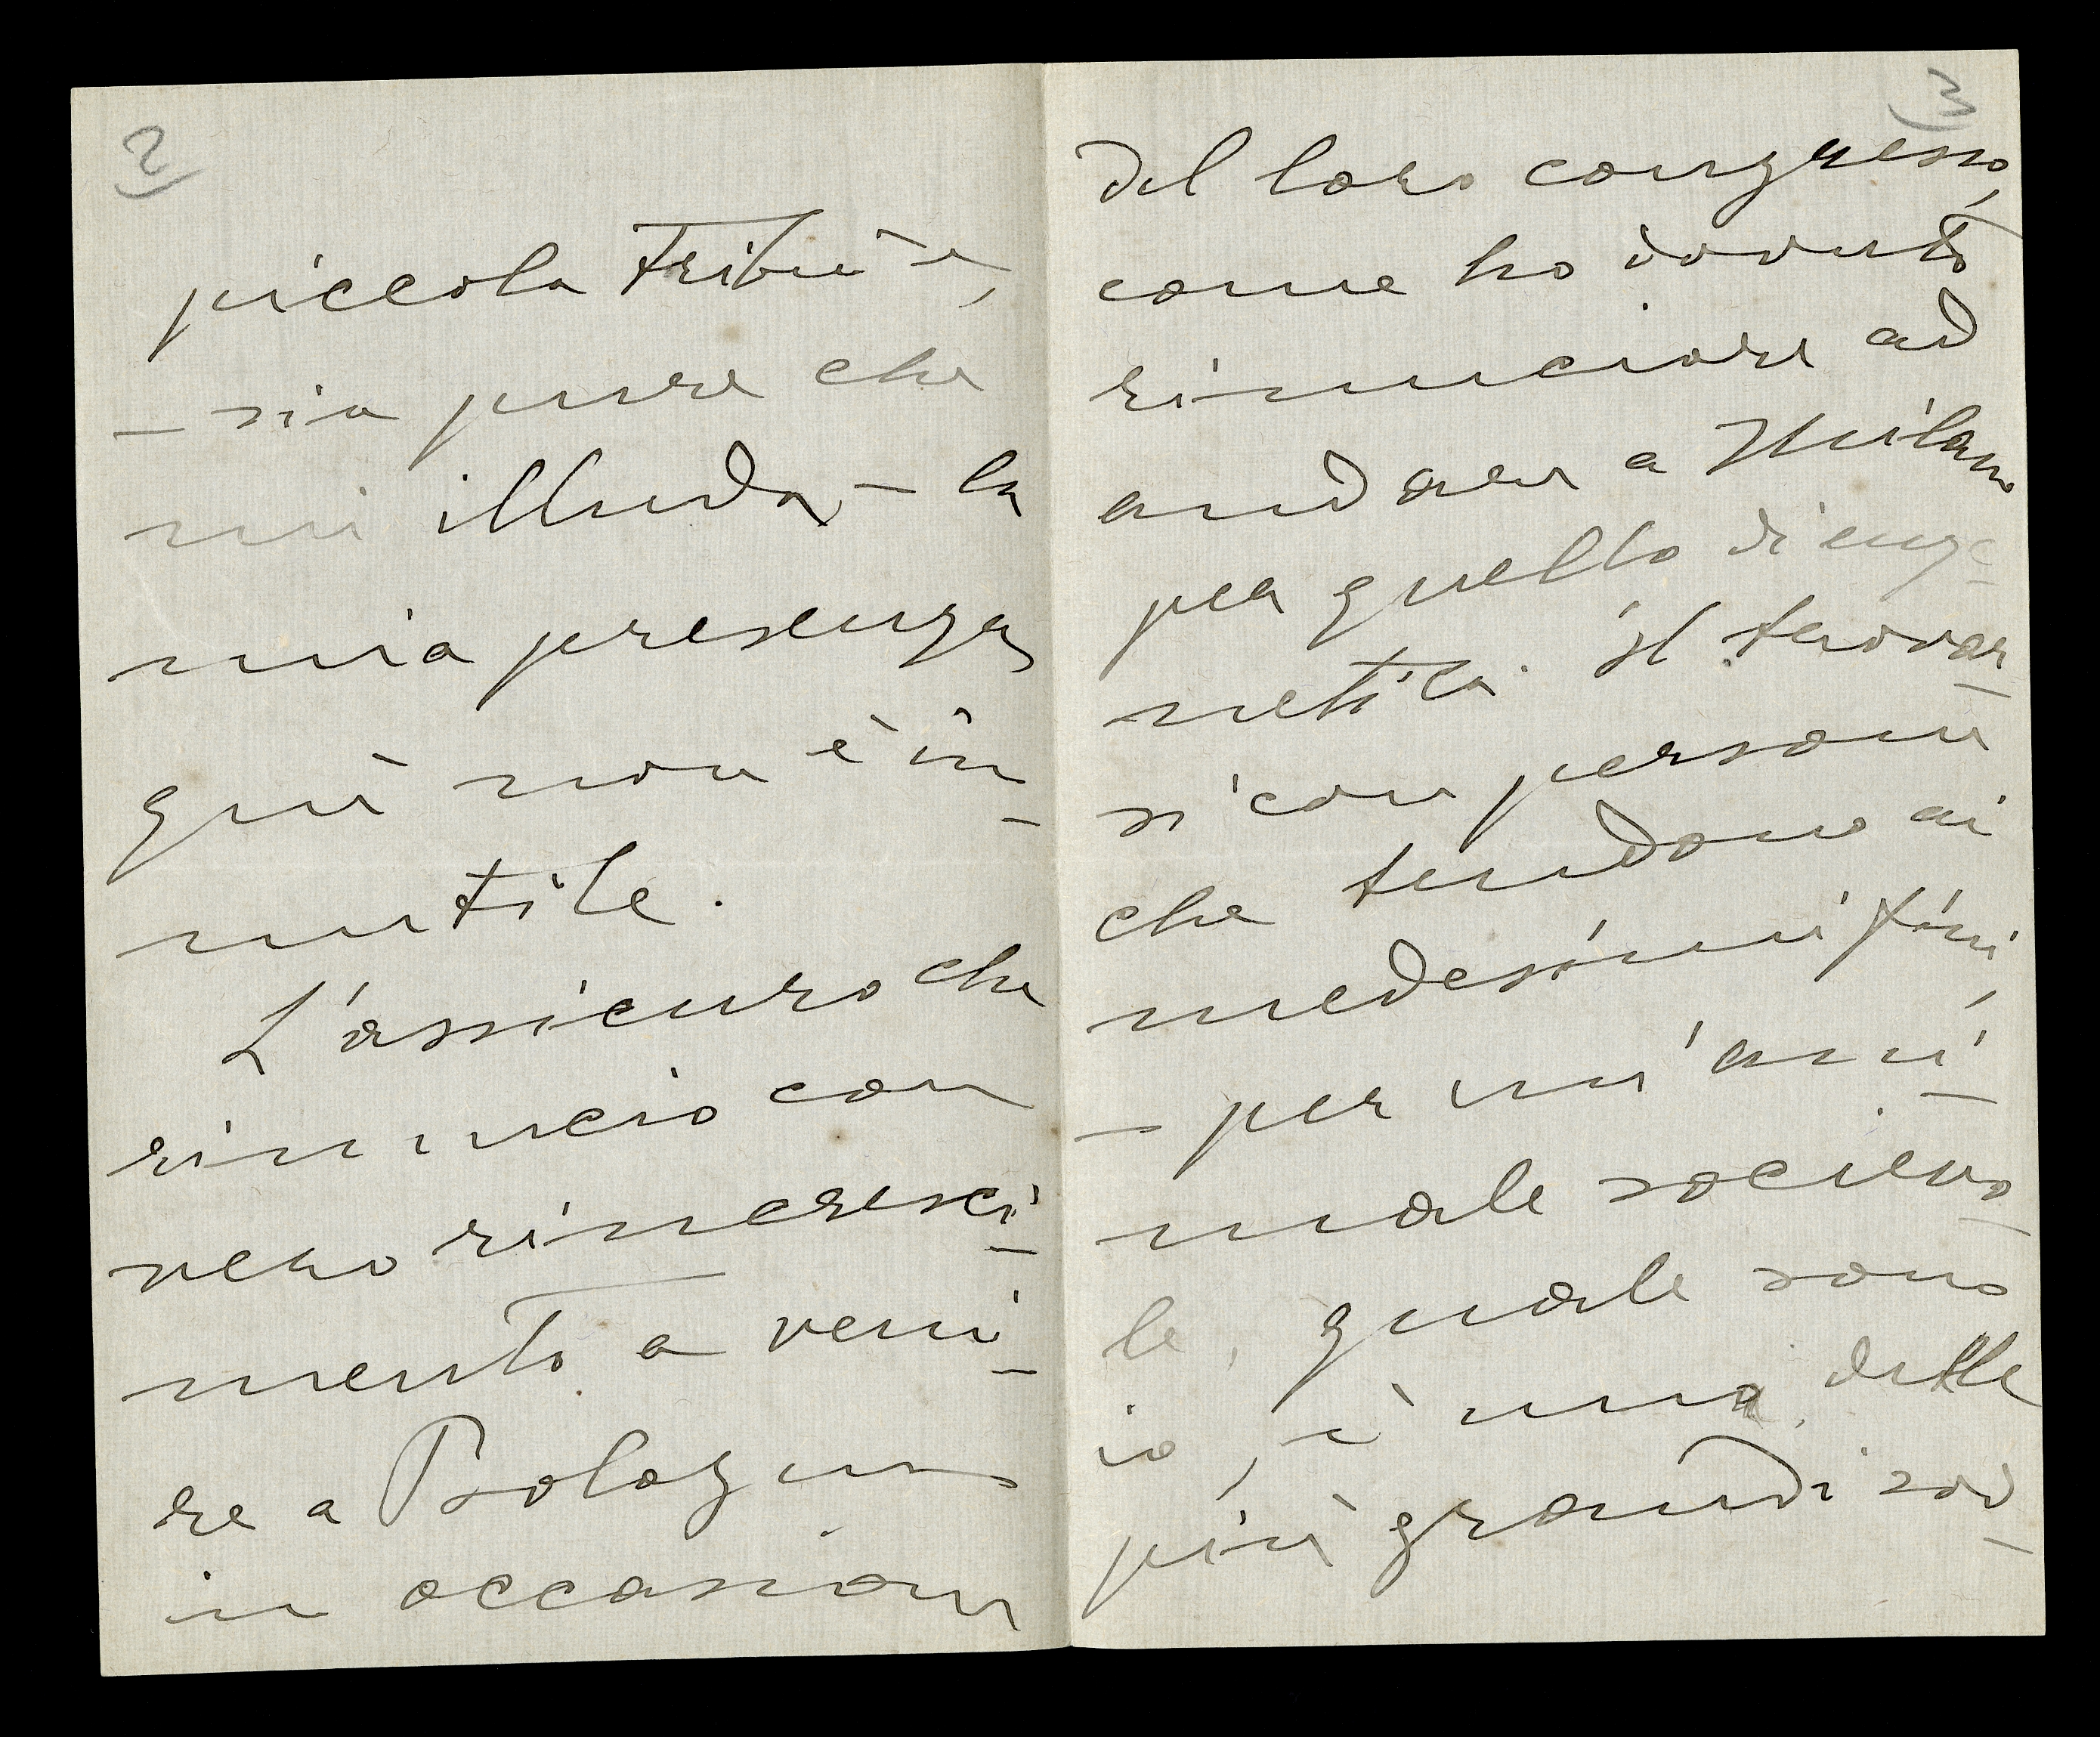 2)
piccola tribù e,
– sia pure che
mi illuda – la
mia presenza
quì non è in-
utile.
L'assicuro che
rinuncio con
vero rincresci-
mento a veni-
re a Bologna
in occasione
3)
del loro congresso,
come ho dovuto
rinunciare ad
andare a Milano
per quello di euge-
netica. Il trovar-
si con persone
che tendono ai
medesimi fini,
– per un'ani-
male socievo-
le, quale sono
io, è una delle
più grandi sod-